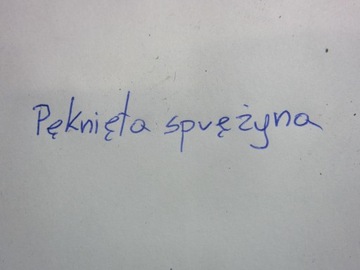 Pęknięta sprężyna